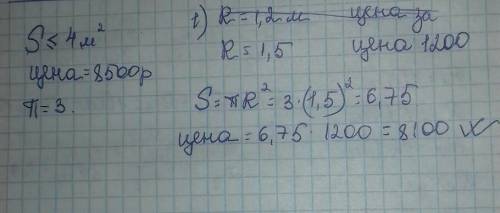 S ≤ 4 м²
цена = 8500р
π = 3.
1) R = 1,2 м цена за
R = 1,5 цена 1200
S = πR² = 3·(1,5)² = 6,75
цена = 6,75 · 1200 = 8100